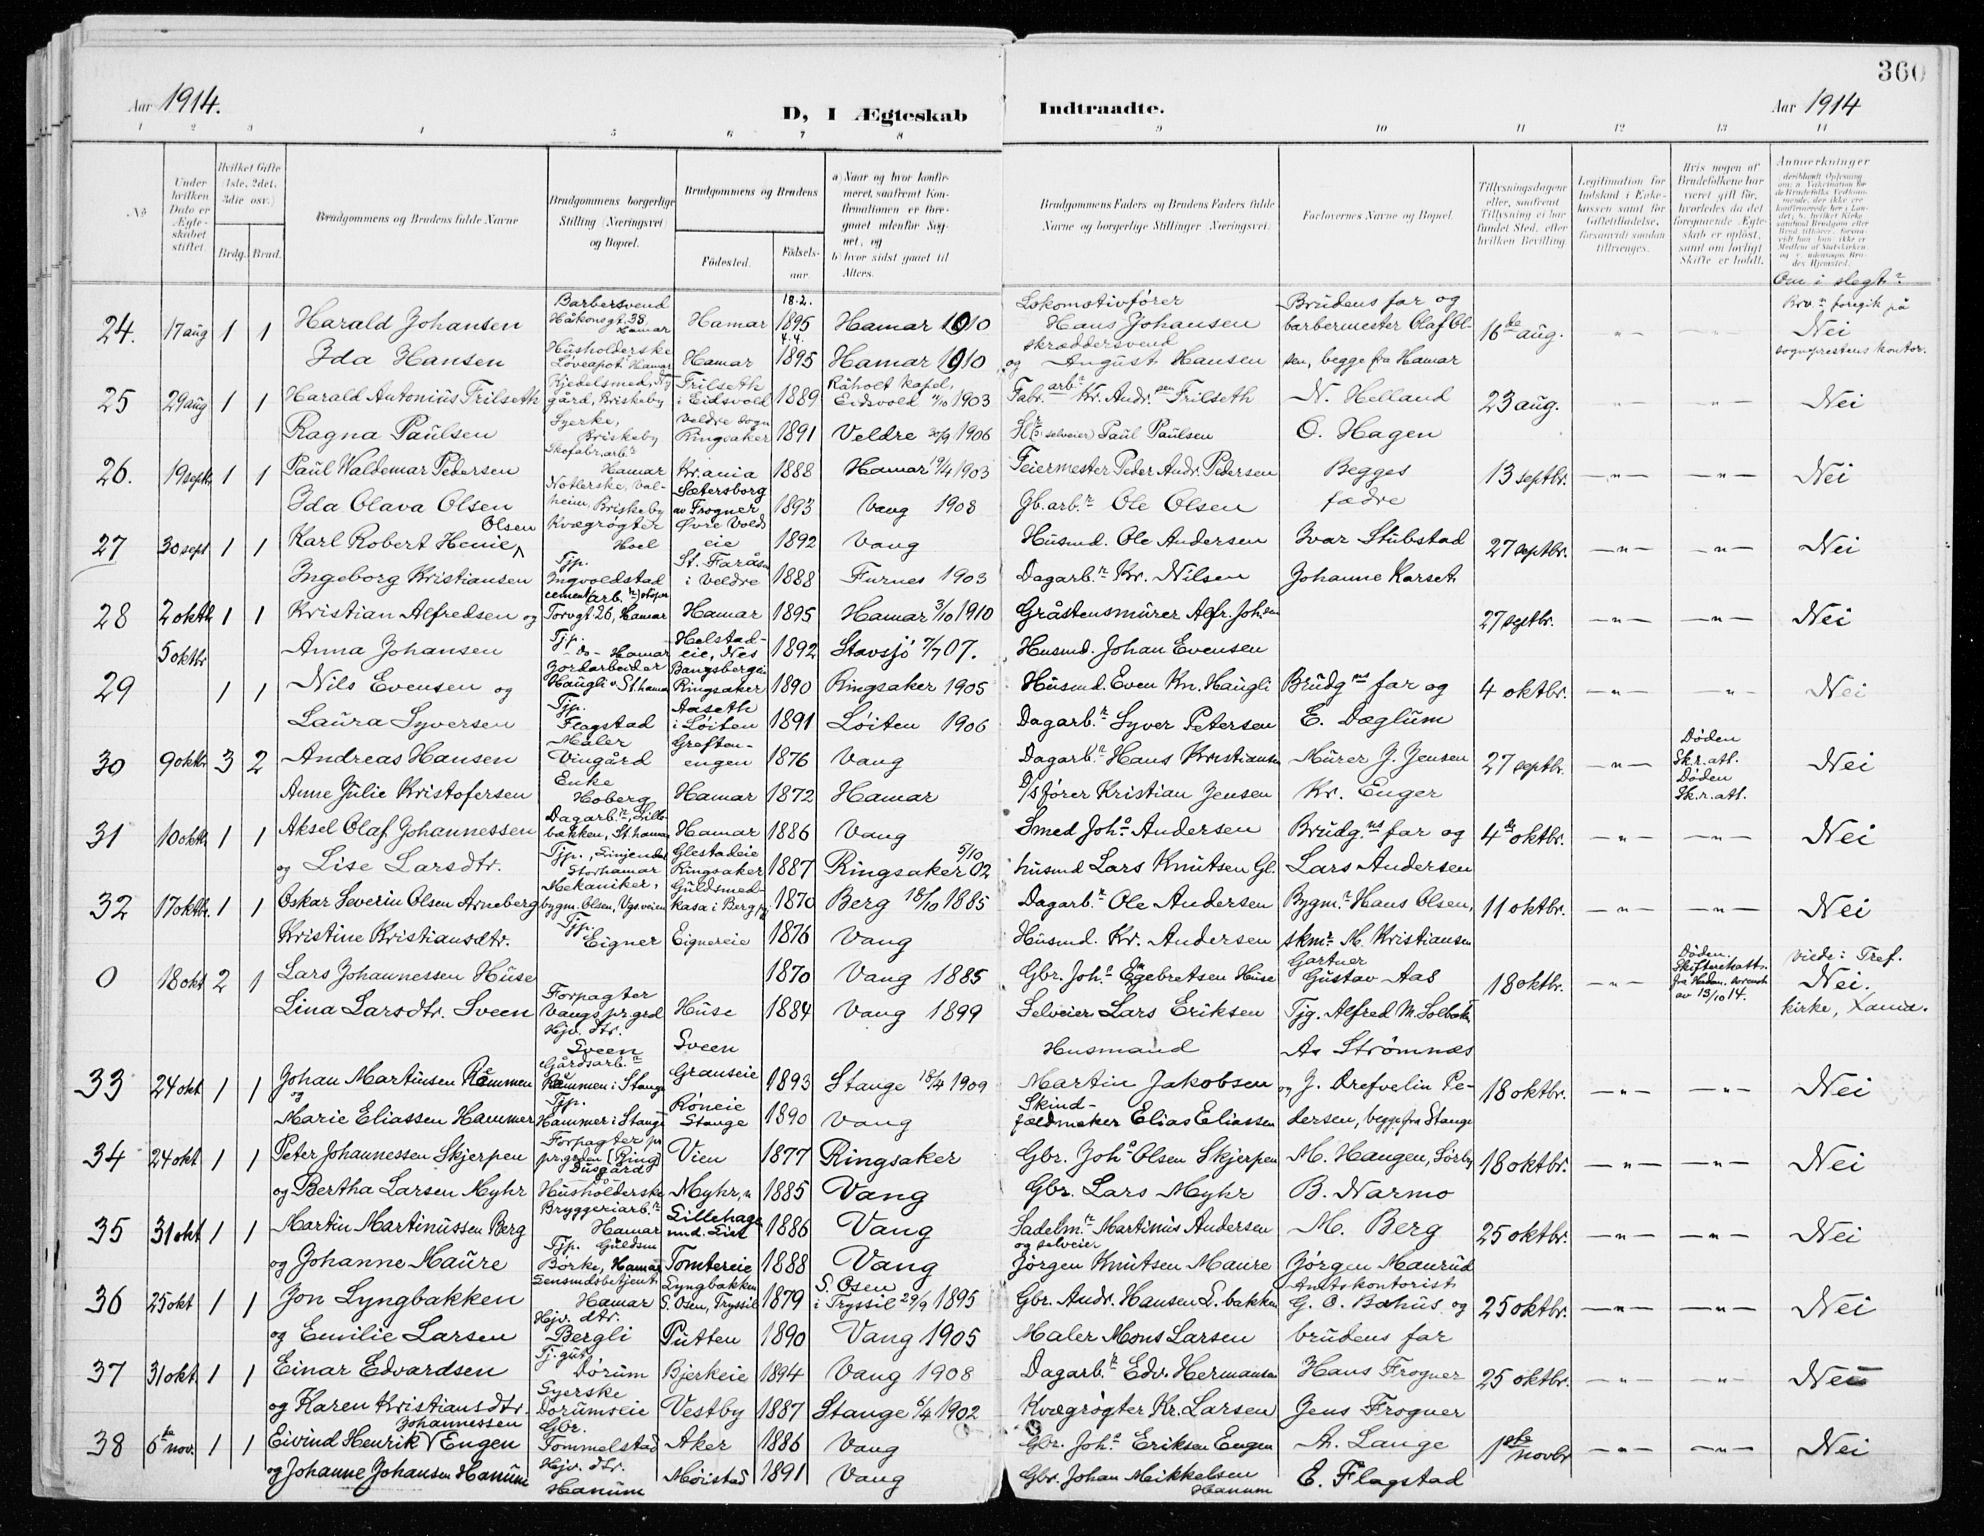 360
Aar 1914.
D, I Ægteskab Indtraadte.
Aar 1914
1 2 3 4 5 6 7 8 9 10 11 12 13 14
No
Under hvilken Dato er Ægteskabet stiftet.
Hvilket Gifte (1ste, 2det, 3die osv.)
Brdg. Brud.
Brudgommens og Brudens fulde Navne
Brudgommens borgerlige Stilling (Næringsvei) og Bopæl.
Brudgommens og Brudens
Fødested. Fødselsaar.
a) Naar og hvor konfirmeret, saafremt Konfirmationen er foregaaet udenfor Sognet, og
b) hvor sidst gaaet til Alters.
Brudgommens Faders og Brudens Faders fulde Navne og borgerlige Stillinger (Næringsvei)
Forlovernes Navne og Bopæl.
Tillysningsdagene eller, saafremt Tillysning ei har fundet Sted, efter hvilken Bevilling
Legitimation for Indskud i Enkekassen samt for Giftetilladelse, forsaavidt saadan tiltrænges.
Hvis nogen af Brudefolkene har været gift før, hvorledes da det foregaaende Ægteskab er opløst, samt om lovligt Skifte er holdt.
Anmerkninger
Om i slegt?
24. 17 aug 1 1 Harald Johansen Barbersvend Håkonsgt. 38 Hamar Hamar 18.2. 1895 Hamar 1910 Lokomotivfører Hans Johansen Brudens far og barbermester Olaf Olsen, begge fra Hamar 16de aug. -"- -"- Brv. foregik på Nei sogneprestens kontor.
Ida Hansen Husholderske Løveapot. Hamar Hamar 4.4. 1895 Hamar 1910 skræddersvend og August Hansen
25 29 aug 1 1 Harald Antonius Frilseth Kjedelsmed, Nygård, Briskeby Frilseth i Eidsvold 1889 Råholt kapel, Eidsvold 1903 Fabr.arb. Kr. Andrsen Frilseth N. Helland 23 aug. -"- -"- Nei
Ragna Paulsen Syerske, Briskeby Veldre sogn Ringsaker 1891 Veldre 30/9 1906 selveier Paul Paulsen O. Hagen
26. 19 septr. 1 1 Paul Waldemar Pedersen Skofabr.arbr Hamar Kr.ania 1888 Hamar 19/4 1903 Feiermester Peder Andr. Pedersen Begges fædre 13 septbr. -"- -"- Nei
Ida Olava Olsen Valheim, Briskeby Sætersborg av Frogner 1893 Vang 1908 Gb.arb.r Ole Olsen
27 30 sept 1 1 Karl Robert Henie Olsen Kvægrøgter Hoel Øvre Voldseie 1892 Vang Husmd. Ole Andersen Ivar Stubstad 27 septbr. -"- -"- Nei
Ingeborg Kristiansen Tjp. Ingvoldstad St. Faråsen i Veldre 1888 Furnes 1903 Dagarb.r Kr. Nilsen Johanne Karset
28 2 oktbr 1 1 Kristian Alfredsen og cementarb.r Torvgt 26, Hamar Hamar 1895 Hamar 3/10 1910 Gråstensmurer Alfr. Johsen 27 septbr. -"- -"- Nei
5 oktbr Anna Johansen Tjp. -do- Hamar Helstadeie, Nes 1892 Stavsjø 7/7 07. Husmd. Johan Evensen
29 1 1 Nils Evensen og Jordarbeider Haugli v. St.hamar Bangsbergeie Ringsaker 1890 Ringsaker 1905 Husmd. Even Kn. Haugli Brudgns far og 4 oktbr. -"- -"- Nei
Laura Syversen Tjp. Flagstad Aaseth i Løiten 1891 Løiten 1906 Dagarb.r Syver Petersen E. Dæglum
30 9 oktbr. 3 2 Andreas Hansen Maler Vingård Greftenengen 1876 Vang Dagarb.r Hans Kristiansen Murer J. Jensen 27 septbr. -"- Døden Sk.r.att. Nei
Anne Julie Kristofersen Enke Hoberg Hamar 1872 Hamar D/sfører Kristian Jensen Kr. Enger Døden Sk.r.att.
31 10 oktbr. 1 1 Aksel Olaf Johannessen Dagarb.r, Lillebækken, St.hamar Hamar 1886 Vang Smed Joh.s Andersen Brudg.ns far og 4de oktbr. -"- -"- Nei
og Lise Larsdtr. Tjp., Storhamar Glestadeie Ringsaker 1887 Ringsaker 5/10 02 husmd Lars Knutsen Gl. Lars Andersen
32 17 oktbr. 1 1 Oskar Severin Olsen Arneberg Mekaniker, bygm. Olsen, Vgsveien Guldsmedkasa i Berg pg. 1870 Berg 18/10 1885 Dagarb.r Ole Andersen Bygm.r Hans Olsen, 11 oktbr. -"- -"- Nei
Kristine Kristiansdtr. Tjp. Eigner Eignereie 1876 Vang Husmd. Kr. Andersen skm.r M. Kristiansen
0 18 okt 2 1 Lars Johannessen Huse Forpagter Vangs pr.grd Huse 1870 Vang 1885 Gbr. Joh.s Egebretsen Huse Gartner Gustav Aas 18 oktbr. -"- Døden. Skifteretsatt. av 13/10 14. viede i Tref. Nei. kirke, Xania.
Lina Larsdtr. Sveen Hjv. dtr. Sveen Sveen 1884 Vang 1899 Selveier Lars Eriksen Tjg. Alfred M. Solbakk
33 24 okt 1 1 Johan Martinsen Råmmen Gårdsarb.r Råmmen i Stange Granseie 1893 Stange 18/4 1909 Husmand Martin Jakobsen As Strømnæs 18 oktbr. -"- -"- Nei
og Marie Eliassen Hammer Tjp. Hammer i Stange Røneie Stange 1890 Vang Skindfældmaker Elias Eliassen og J. Orefvelin Pedersen, begge fra Stange
34 24 okt 1 1 Peter Johannessen Skjerpen Forpagter pr pr.grden (Ring) Busgård Vien 1877 Ringsaker Gbr. Joh.s Olsen Skjerpen M. Haugen, Sørby 18 oktbr. -"- -"- Nei
og Bertha Larsen Myhr Husholderske Myhr, n 1885 Vang Gbr. Lars Myhr B. Narmo
35 31 okt 1 1 Martin Martinussen Berg Bryggeriarb.r Hamar Lillehagen 1886 Vang Sadelm.r Martinus Andersen M. Berg 25 oktbr. -"- -"- Nei
og Johanne Maure Tjp. Guldsm Børke, Hamar Tomtereie 1888 Vang og selveier Jørgen Knutsen Maure Jørgen Maurud
36 25 okt 1 1 Jon Lyngbakken Lensmdsbetjent Hamar Lyngbakken S. Osen, Tryssil 1879 S. Osen i Tryssil 29/9 1895 Gbr. Andr. Hansen L.bakken Amtskontorist G. O. Bahus og 25 oktbr. -"- -"- Nei
og Emilie Larsen Hjv. dtr. Bergli Putten 1890 Vang 1905 Maler Mons Larsen brudens far
37 31 okt. 1 1 Einar Edvardsen Tj.gut Dørum Bjerkeie 1894 Vang 1908 Dagarb.r Edv. Hermansen Hans Frogner 25 oktbr. -"- -"- Nei
og Karen Kristiansdtr. Syerske Dørumseie Vestby 1887 Stange 6/4 1902 Kvægrøgter Kr. Larsen Jens Frogner
38 6te nov. 1 1 Eivind Henrik Johannessen Engen Gbr. Tommelstad Aker 1886 Vang Gbr. Joh.s Eriksen Engen A. Lange 1ste novbr -"- -"- Nei
og Johanne Johansen Hanum Hjv. dtr. Hanum Møistad 1891 Vang Gbr. Johan Mikkelsen Hanum E. Flagstad